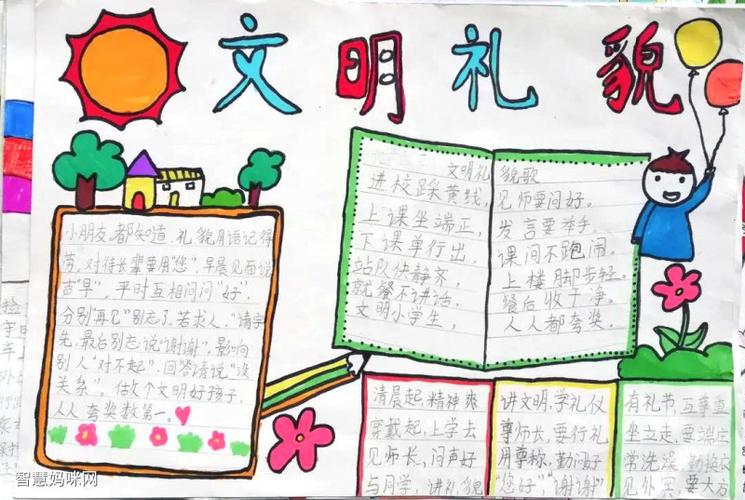 文明礼貌
小朋友,都知道,礼貌用语记得
劳,对待长辈要用"您",早晨见面说
声"早",平时互相问问"好",
分别"再见"别忘了,若求人,"请字
先,最后别忘说"谢谢",影响
别人"对不起",回答请说"没
关系",做个文明好孩子,
人人夸奖数第一。
文明礼貌歌
进校踩黄线,见师要问好。
上课坐端正,发言要举手。
下课单行出,课间不跑闹。
站队快静齐,上楼脚步轻。
就餐不讲话,餐后收干净。
文明小学生,人人都夸奖。
清晨起,精神爽
穿戴起,上学去
见师长,问声好
与同学,讲礼貌
讲文明,学礼仪
尊师长,要行礼
用尊称,勤问好
"您好""谢谢"
有礼节,互尊重
坐立走,要端庄
常洗澡,勤换衣
见外宾,要大方
智慧妈咪网